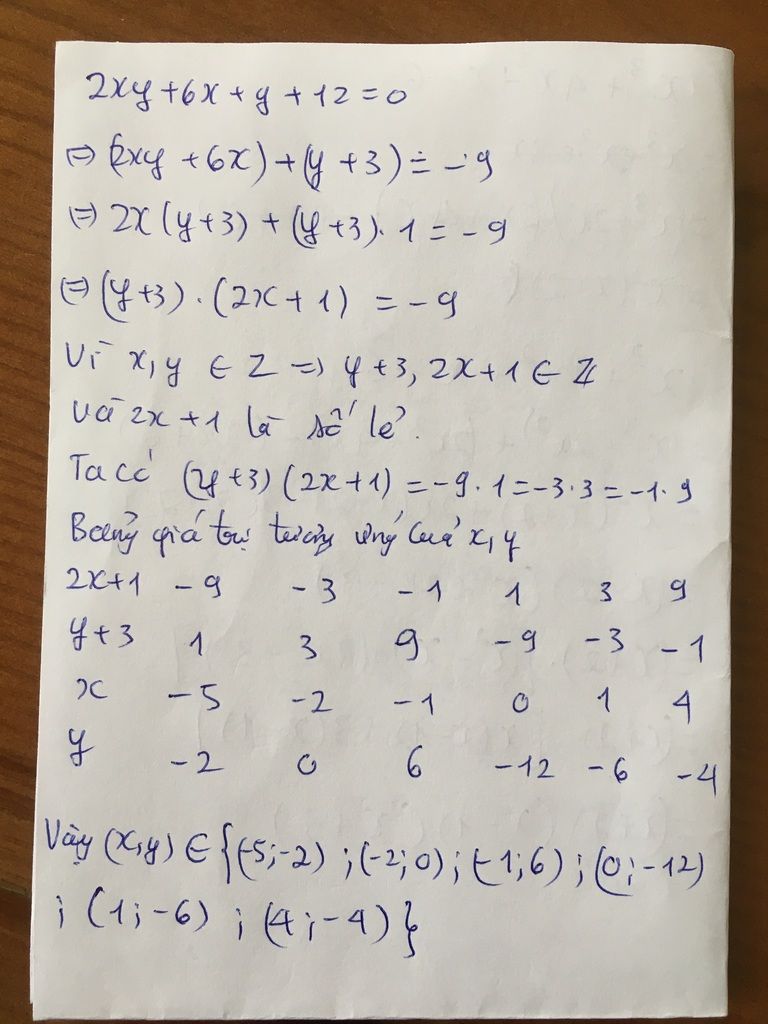 2xy+6x+y+12=0
⇔ (2xy +6x)+(y +3) = -9
⇔ 2x(y+3) + (y+3). 1 = -9
⇔ (y+3) . (2x+1) = -9
Vì x,y ∈ Z => y+3, 2x+1 ∈ Z
và 2x+1 là số lẻ.
Ta có (y+3)(2x+1) = -9.1=-3.3=-1.9
Bảng giá trị tương ứng của x,y
2x+1 -9 -3 -1 1 3 9
y+3 1 3 9 -9 -3 -1
x -5 -2 -1 0 1 4
y -2 0 6 -12 -6 -4
Vậy (x,y) ∈ {(-5;-2) ;(-2;0);(-1;6) ;(0;-12)
; (1;-6) ; (4;-4)}